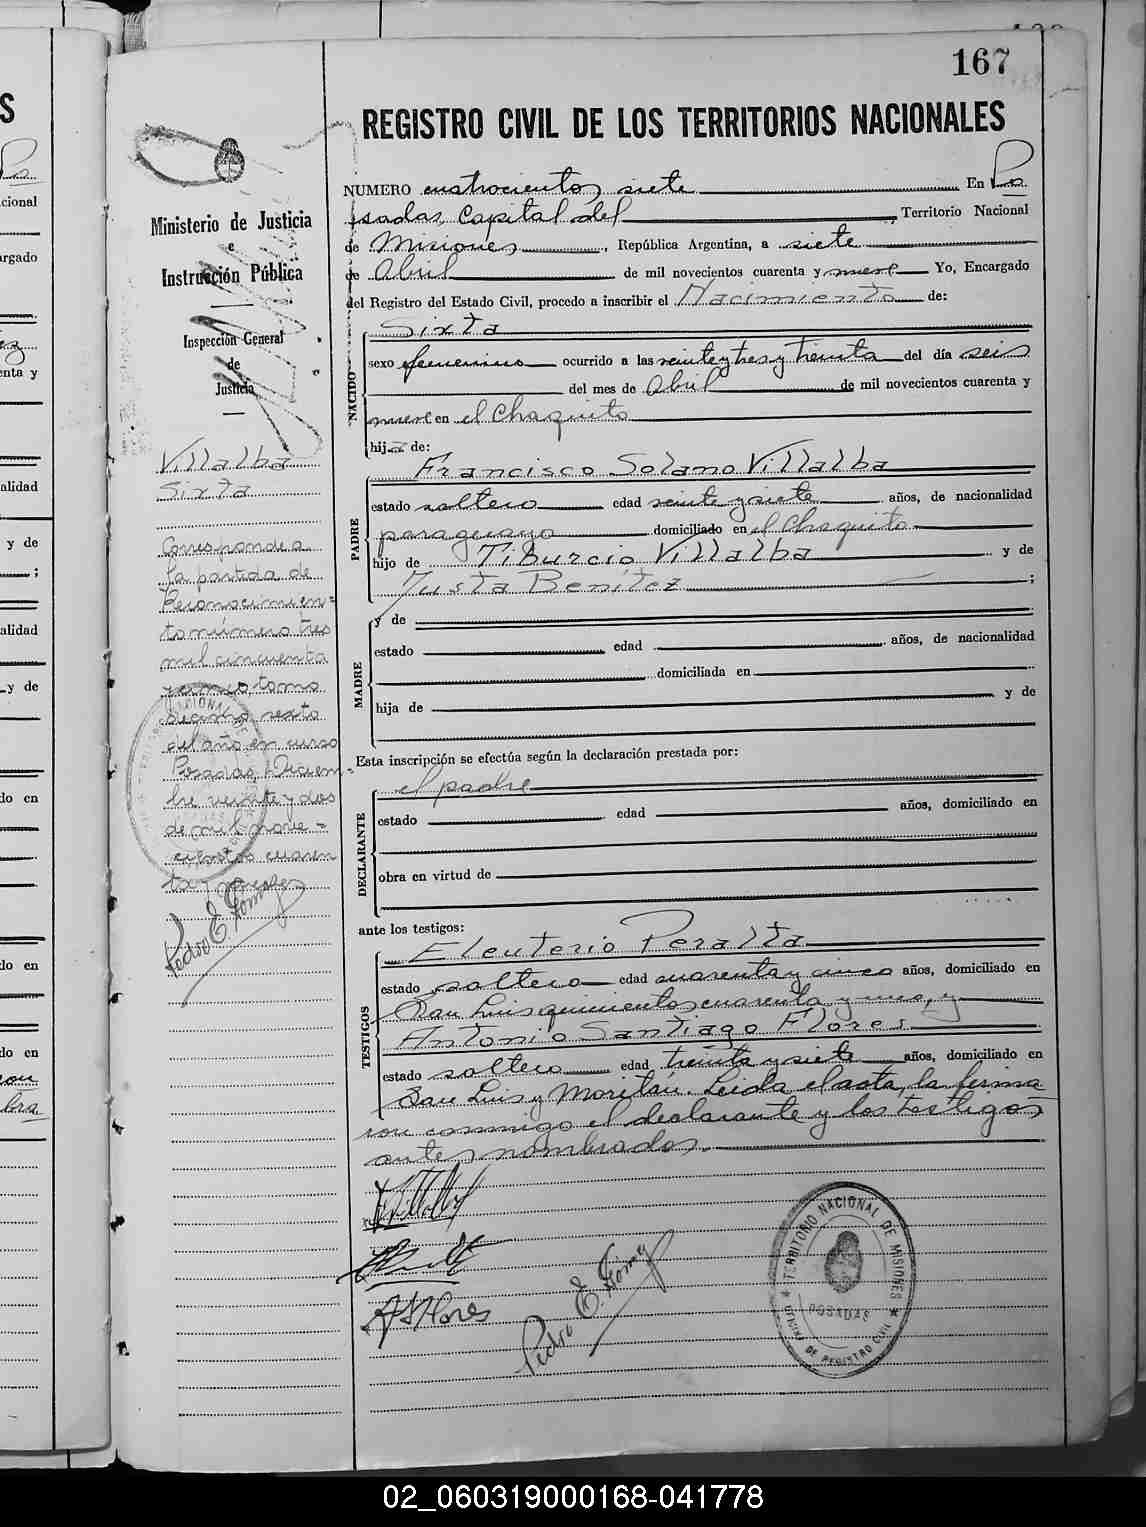 167
REGISTRO CIVIL DE LOS TERRITORIOS NACIONALES
Ministerio de Justicia
e
Instrucción Pública
Inspección General
de
Justicia
Villalba
Sixta
Corresponde a
la partida de
Reconocimien=
to número tres
mil cincuenta
y cinco tomo
decimo sexto
del año en curso
Posadas, Diciem=
bre veinte y dos
de mil nove=
cientos cuaren
ta y nueve
Pedro E. Gomez
NUMERO cuatrocientos siete En Po
sadas, Capital del , Territorio Nacional
de Misiones , República Argentina, a siete
de Abril de mil novecientos cuarenta y nueve Yo, Encargado
del Registro del Estado Civil, procedo a inscribir el Nacimiento de:
NACIDO
Sixta
sexo femenino ocurrido a las veinte y tres y treinta del día seis
del mes de Abril de mil novecientos cuarenta y
nueve en el Chaquito
hija de:
PADRE
Francisco Solano Villalba
estado soltero edad veinte y siete años, de nacionalidad
paraguayo domiciliado en el Chaquito
hijo de Tiburcio Villalba y de
Justa Benítez ;
MADRE
y de
estado edad años, de nacionalidad
domiciliada en
hija de y de
Esta inscripción se efectúa según la declaración prestada por:
DECLARANTE
el padre
estado edad años, domiciliado en
obra en virtud de
ante los testigos:
TESTIGOS
Eleuterio Peralta
estado soltero edad cuarenta y cinco años, domiciliado en
San Luis quinientos cuarenta y uno, y
Antonio Santiago Flores
estado soltero edad treinta y siete años, domiciliado en
San Luis y Moritán. Leída el acta, la firma
ron conmigo el declarante y los testigos
antes nombrados.
FVillalba
A S Flores
Pedro E. Gomez
TERRITORIO NACIONAL DE MISIONES
POSADAS
OFICINA DE REGISTRO CIVIL
02_060319000168-041778